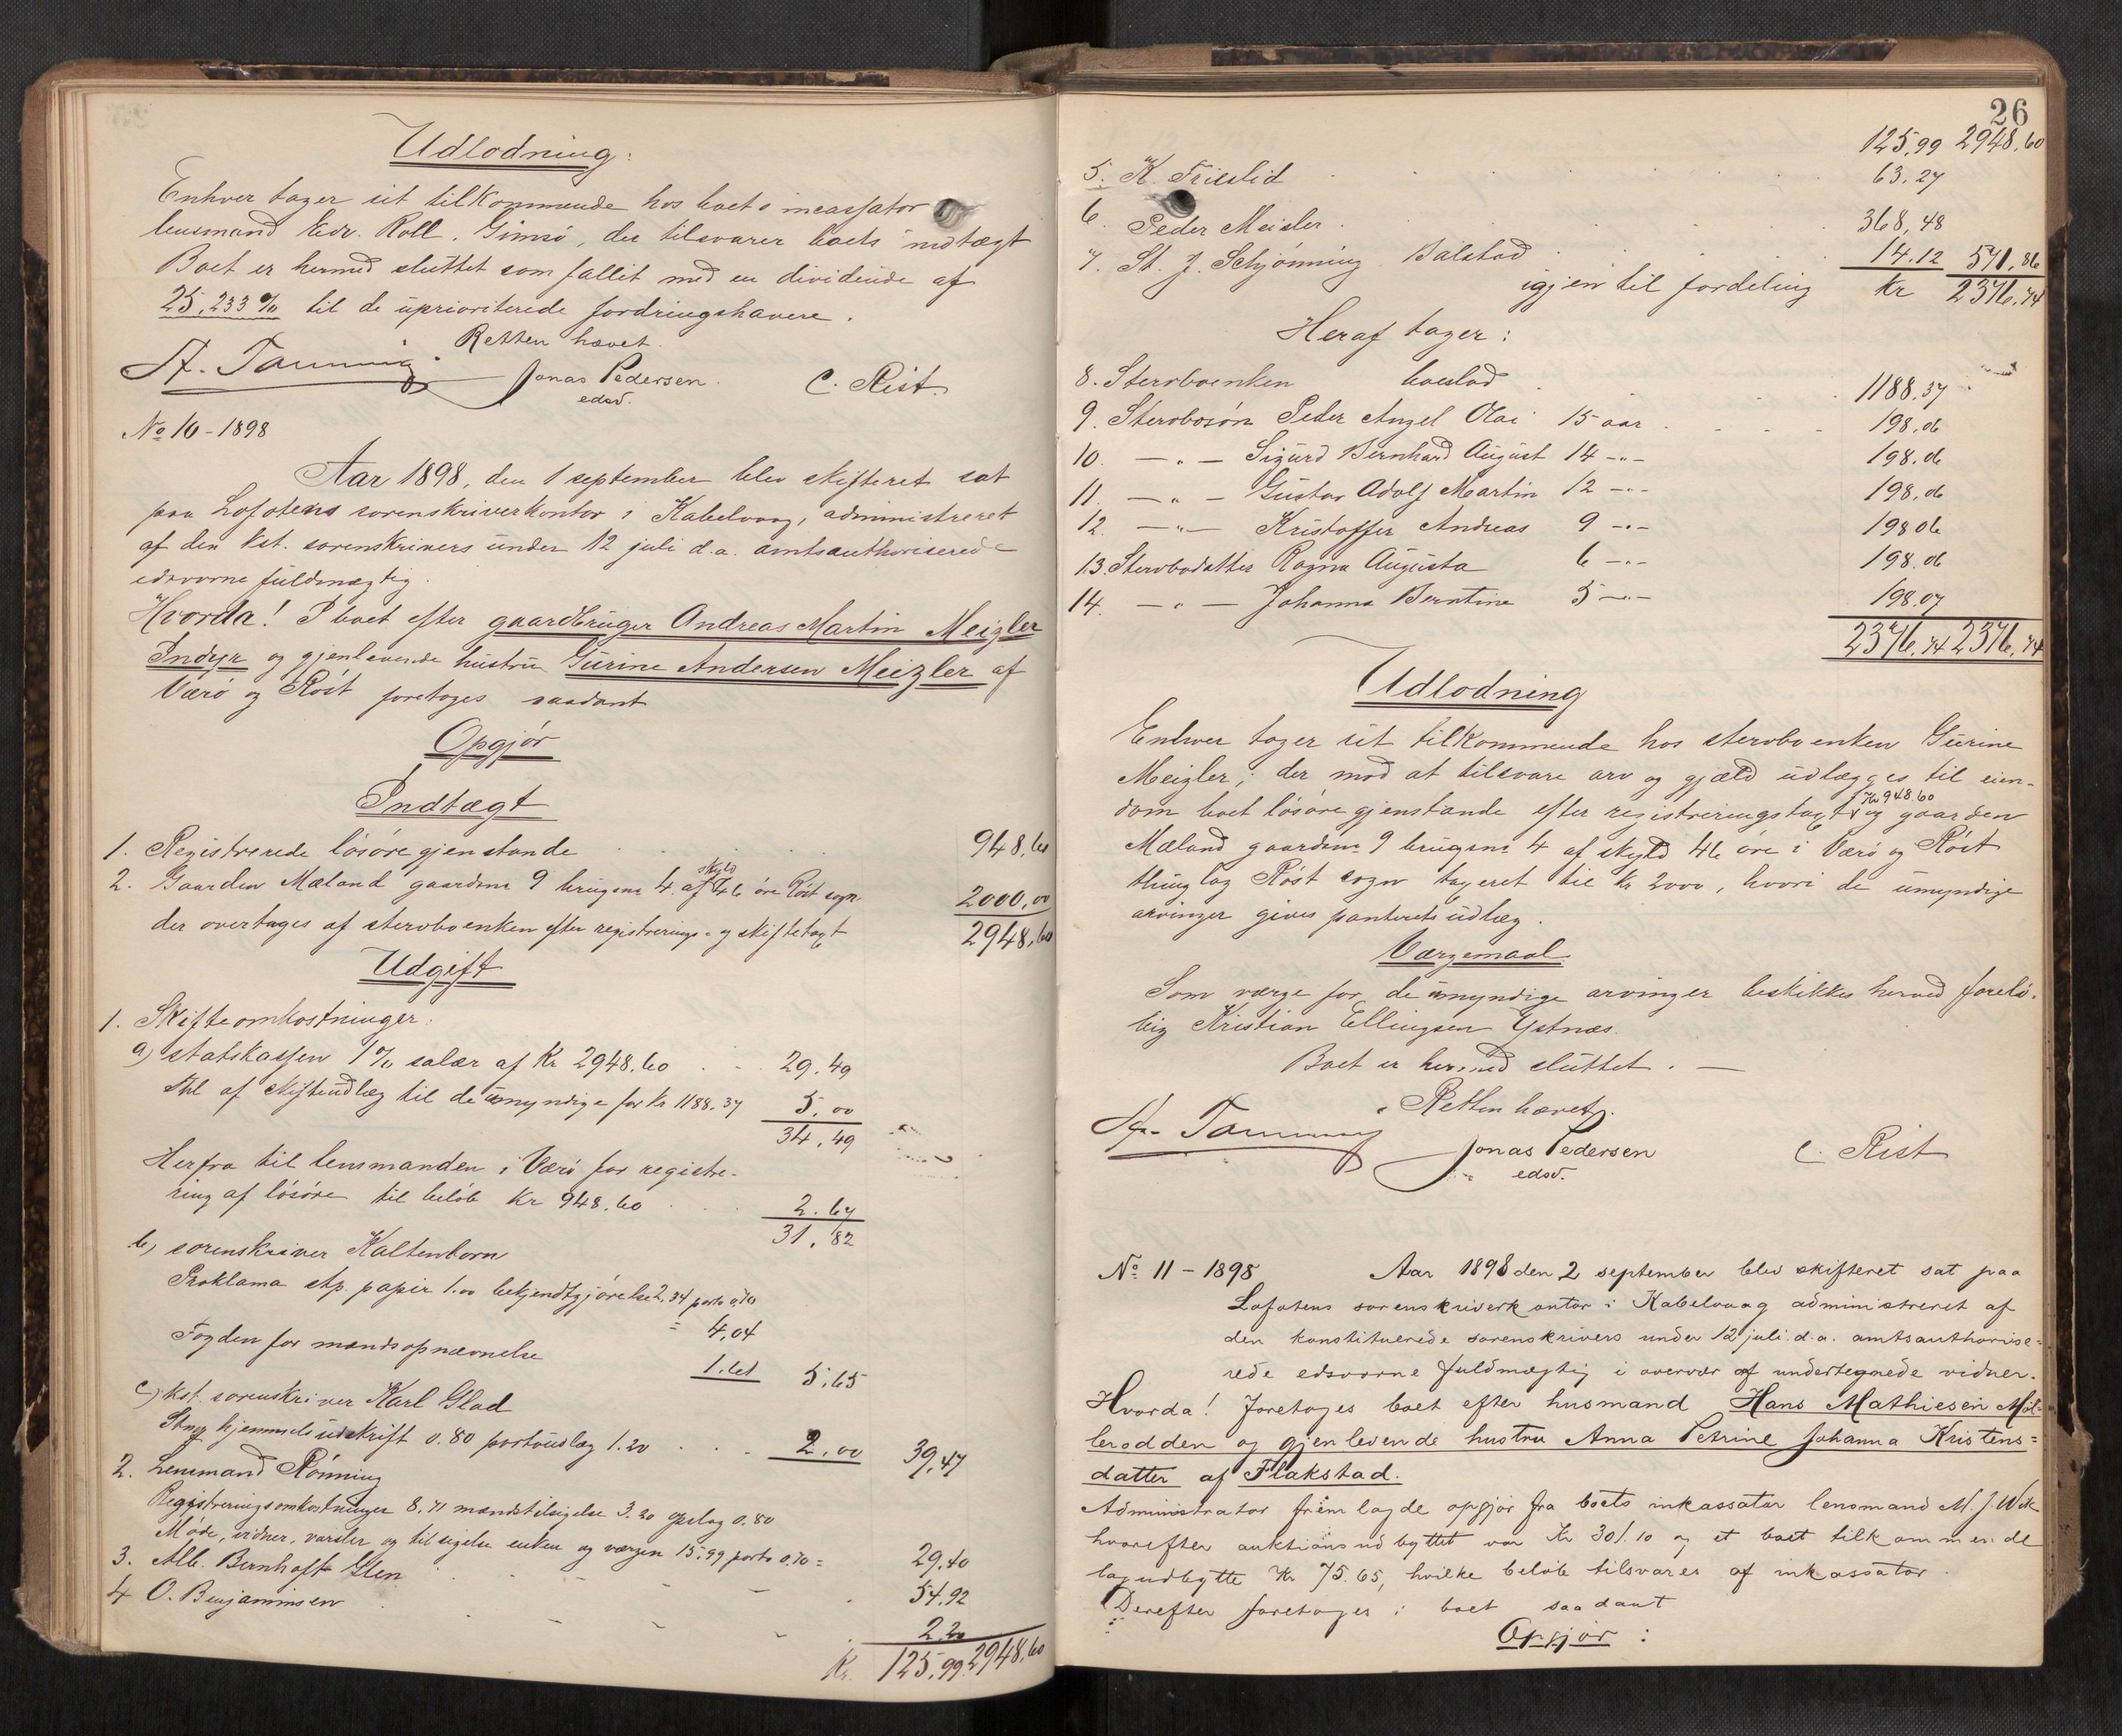 Udlodning:
Enhver tager sit tilkommende hos boets incassator
lensmand Edv. Roll. Gimsö, der tilsvarer boets indtægt
Boet er hermed sluttet som fallit med en dividende af
25,233 % til de uprioriterede fordringshavere.
Retten hævet.
Jonas Pedersen.
edsv.
C. Rist.
No 10 - 1898
Aar 1898, den 1 september blev skifteret sat
paa Lofotens sorenskriverkontor i Kabelvaag, administreret
af den kst. sorenskrivers under 12 juli d.a. amtsauthoriserede
edsvorne fuldmægtig.
Hvorda! I boet efter gaardbruger Andreas Martin Meizler
Indyr og gjenlevende hustru Gurine Andersen Meizler af
Værö og Röst foretoges saadant
Opgjör
Indtægt
1. Registrerede lösöregjenstande 948,60
2. Gaarden Mæland gaardsnr 9 brugsnr 4. af skyld 46 öre Röst sogn 2000,00
der overtages af stervboenken efter registrerings- og skiftetaxt 2948,60
Udgift
1. Skifteomkostninger:
a) statskassen 1% salær af Kr 2948.60 29.49
Stpl af skifteudlæg til de umyndige for Kr 1188.37 5,00
34,49
Herfra til lensmanden i Værö for registre-
ring af lösöre til belöb Kr 948.60 2.67
31,82
b) sorenskriver Kaltenborn
Proklama stp. papir 1.00 bekjendtgjörelse 2,34 porto 0,70
= 4,04
Fogden for mandsopnævnelse 1.61 5,65
c) kst. sorenskriver Karl Glad
Stmp hjemmelsudskrift 0.80 portoudlæg 1.20 2,00 39,47
2. Lensmand Rönning
Registreringsomkostninger 8,71 mandstilsigelse 3.20 opslag 0.80
Möde, vidner, varsler og tilsigelse enken og værgen 15,99 porto 0.70 = 29,40
3. Alb. Bernhoft Glen 54,92
4 O. Benjaminsen 2,20
Kr. 125,99 2948,60
26
125,99 2948,60
5. K. Frieslid 63,27
6. Peder Meisler 368,48
7. St. J. Schjönning Balstad 14.12 571,86
igjen til fordeling Kr 2376,74
Heraf tager:
8. Stervboenken boeslod 1188.37
9. Stervbosön Peder Angel Olai 15 aar 198,06
10. — „ — Sigurd Bernhard August 14 -„- 198.06
11. — „ — Gustav Adolf Martin 12 -„- 198,06
12. — „ — Kristoffer Andreas 9 -„- 198 06
13. Stervbodatter Ragna Augusta 6 -„- 198.06
14. — „ — Johanna Berntine 5 -„- 198.07
2376,74 2376,74
Udlodning
Enhver tager sit tilkommende hos stervboenken Gurine
Meizler; der mod at tilsvare arv og gjæld udlægges til eien-
dom boet lösöregjenstande efter registreringstaxt Kr 948.60 og gaarden
Mæland gaardsnr 9 brugsnr 4 af skyld 46 öre i Værö og Röst
thinglag Röst sogn taxeret til Kr 2000, hvori de umyndige
arvinger gives panteretsudlæg.
Værgemaal
Som værge for de umyndige arvinger beskikkes herved forelö-
big Kristian Ellingsen Ystnæs.
Boet er hermed sluttet. —
Retten hævet.
Jonas Pedersen
edsv.
C. Rist
No 11 - 1898 Aar 1898 den 2 september blev skifteret sat paa
Lofotens sorenskriverkontor i Kabelvaag administreret af
den konstituerede sorenskrivers under 12 juli d.a. amtsauthorise=
rede edsvorne fuldmægtig i overvær af undertegnede vidner.
Hvorda! Foretoges boet efter husmand Hans Mathiesen Möl-
lerodden og gjenlevende hustru Anna Petrine Johanna Kristens=
datter af Flakstad.
Administrator fremlagde opgjör fra boets inkassator lensmand M. J. Wik
hvorefter auktionsudbyttet var Kr 301.10 og et boet tilkommende
lagudbytte Kr 75.65, hvilke belöb tilsvares af inkassator.
Derefter foretoges i boet saadant
Opgjör: